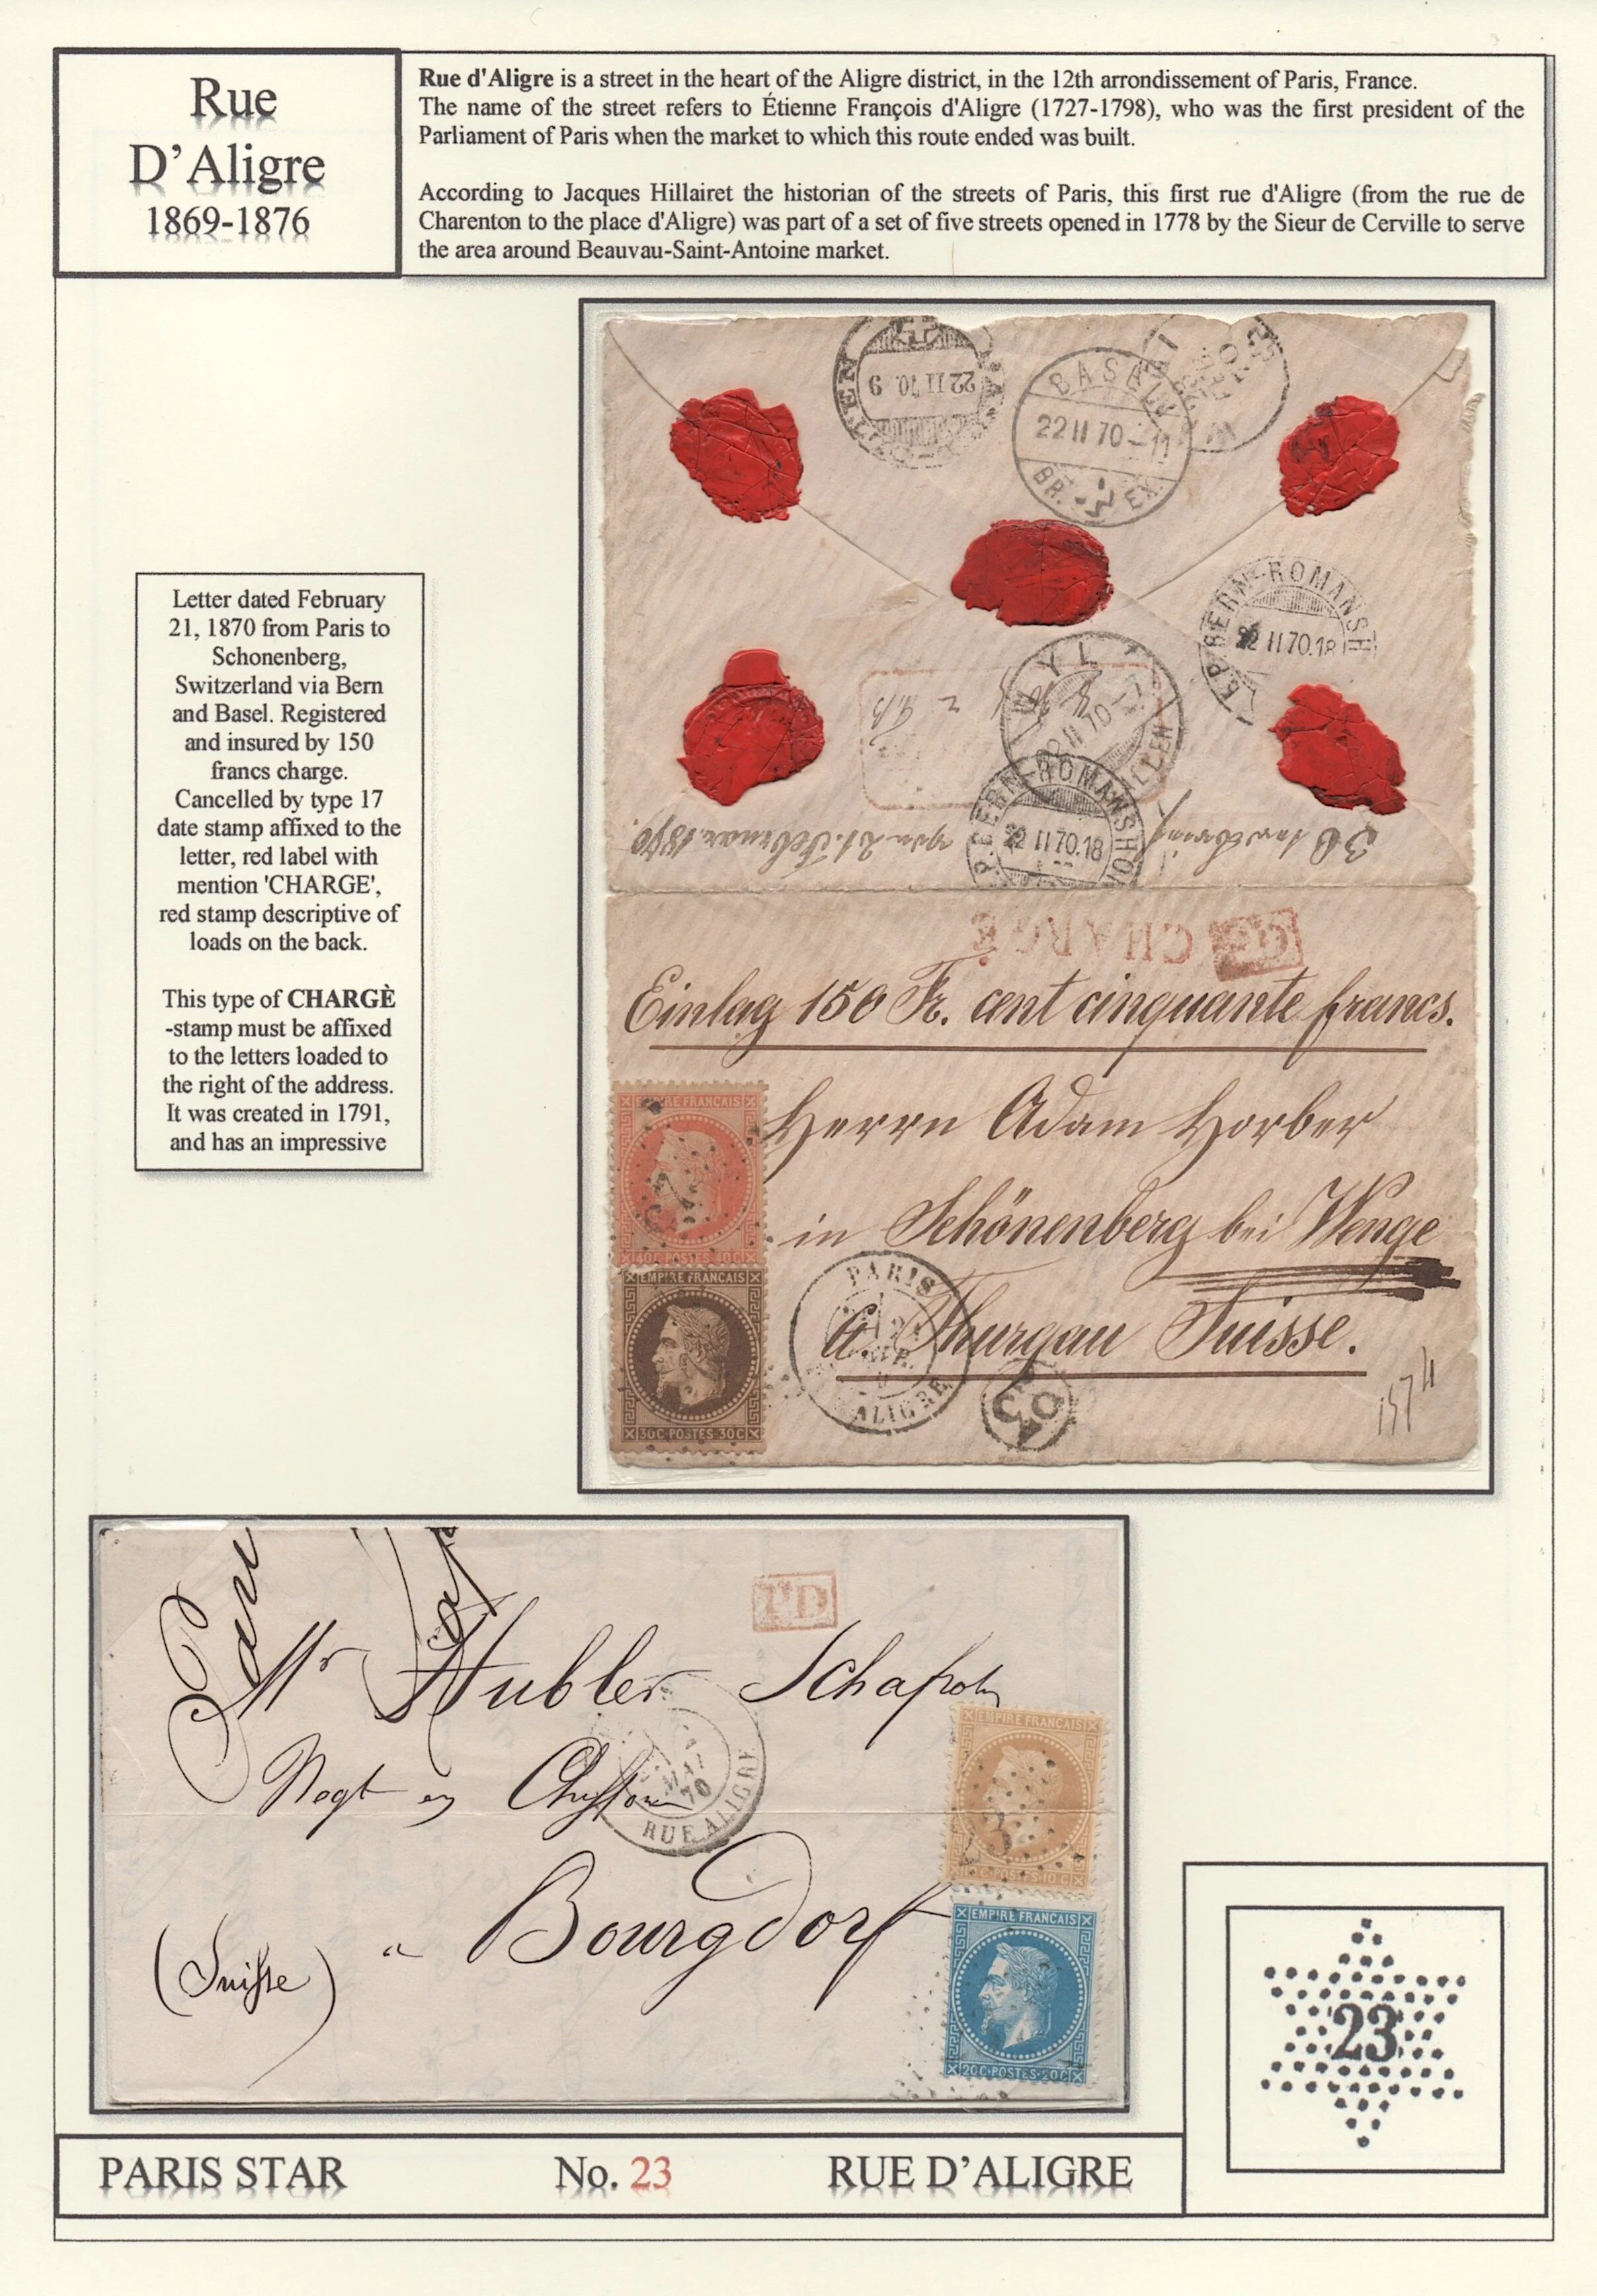 Rue
D'Aligre
1869-1876
Rue d'Aligre is a street in the heart of the Aligre district, in the 12th arrondissement of Paris, France.
The name of the street refers to Étienne François d'Aligre (1727-1798), who was the first president of the
Parliament of Paris when the market to which this route ended was built.
According to Jacques Hillairet the historian of the streets of Paris, this first rue d'Aligre (from the rue de
Charenton to the place d'Aligre) was part of a set of five streets opened in 1778 by the Sieur de Cerville to serve
the area around Beauvau-Saint-Antoine market.
Letter dated February
21, 1870 from Paris to
Schonenberg,
Switzerland via Bern
and Basel. Registered
and insured by 150
francs charge.
Cancelled by type 17
date stamp affixed to the
letter, red label with
mention 'CHARGE',
red stamp descriptive of
loads on the back.
This type of CHARGÈ
-stamp must be affixed
to the letters loaded to
the right of the address.
It was created in 1791,
and has an impressive
22 II 70. 9
BASEL
22 II 70 - 11
BR. EX.
BERN-ROMANSH
22 II 70.18
WYL
BERN-ROMANSHOR
22 II 70.18
21. Februar 1870.
CHARGÉ
Einlag 150 Fr. cent cinquante francs.
Herrn Adam Horber
in Schönenberg bei Wenge
Ct. Thurgau Suisse.
EMPIRE FRANCAIS
40C POSTES 40C
EMPIRE FRANCAIS
30C POSTES 30C
PARIS
ALIGRE
1574
PD
Mr Hubler Schafroth
Negt en
MAI
70
RUE ALIGRE
a Bourgdorf
(Suisse)
EMPIRE FRANCAIS
POSTES 10C
EMPIRE FRANCAIS
20C POSTES 20C
23
PARIS STAR No. 23 RUE D'ALIGRE